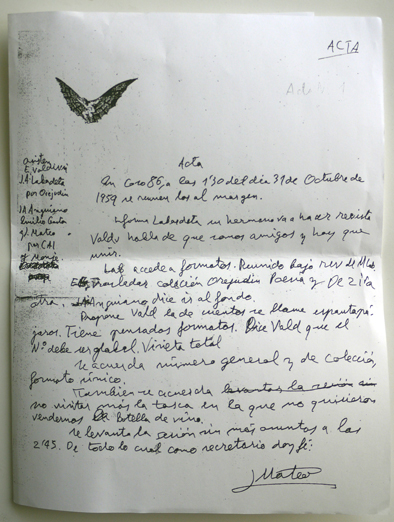 ACTA
Acta
E. Valdivi
J.A. Labordeta
por Orejudín
J.A. Anguiano
Emilio Gastón
J. Mateo
por CAI
En Coso 86, a las 1'30 del día 31 de Octubre de
1959 se reunen los al margen.
Informa Labordeta su hermano va a hacer revista
Vald. habla de que somos amigos y hay que
unir.
Lab. accede a formatos. Reunido bajo
colección Orejudín Poesía y De 2 il a
otra. Anguiano dice ir al fondo.
Propone Vald. la de cuentos se llame espantapá
jaros. Tiene pensados formatos. Dice Vald que el
Nº debe ser global. Viñeta total
Se acuerda número general y de colección,
formato único.
También se acuerda levantar la sesión sin
no visitar más la tasca en la que no quisieron
vendernos la botella de vino.
Se levanta la sesión sin más asuntos a las
2'45. De todo lo cual como secretario doy fé:
J Mateo